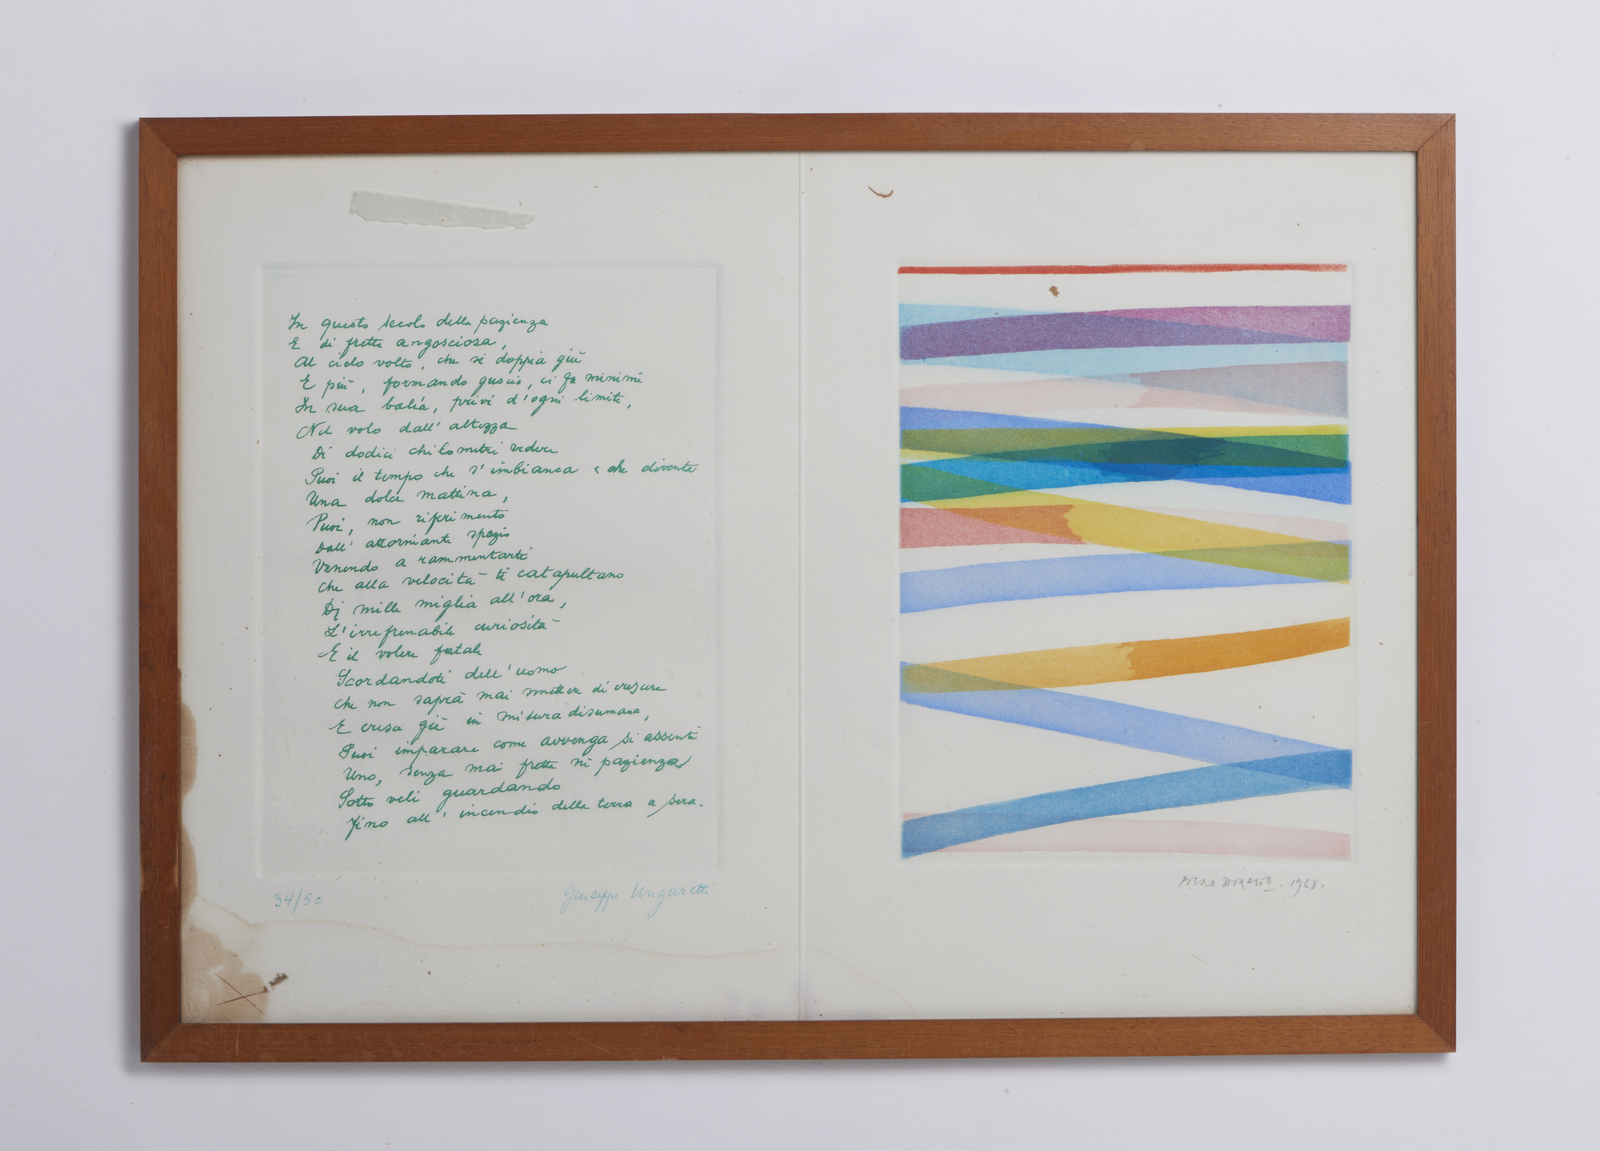 In questo secolo della pazienza
E di fretta angosciosa,
Al cielo volto, che si doppia giù
E più, formando guscio, ci fa minimi
In sua balìa, privi d'ogni limite,
Nel volo dall'altezza
Di dodici chilometri vedere
Puoi il tempo che s'imbianca e che diventa
Una dolce mattina,
Puoi, non riferimento
Dall'attorniante spazio
Venendo a rammentarti
Che alla velocità ti catapultano
Di mille miglia all'ora,
L'irrefrenabile curiosità
E il volere fatale
Scordandoti dell'uomo
Che non saprà mai smettere di crescere
E cresce già in misura disumana,
Puoi imparare come avvenga si assenti
Uno, senza mai fretta nè pazienza
Sotto veli guardando
Fino all'incendio della terra a sera.
34/50
Giuseppe Ungaretti
Piero Dorazio. 1968.